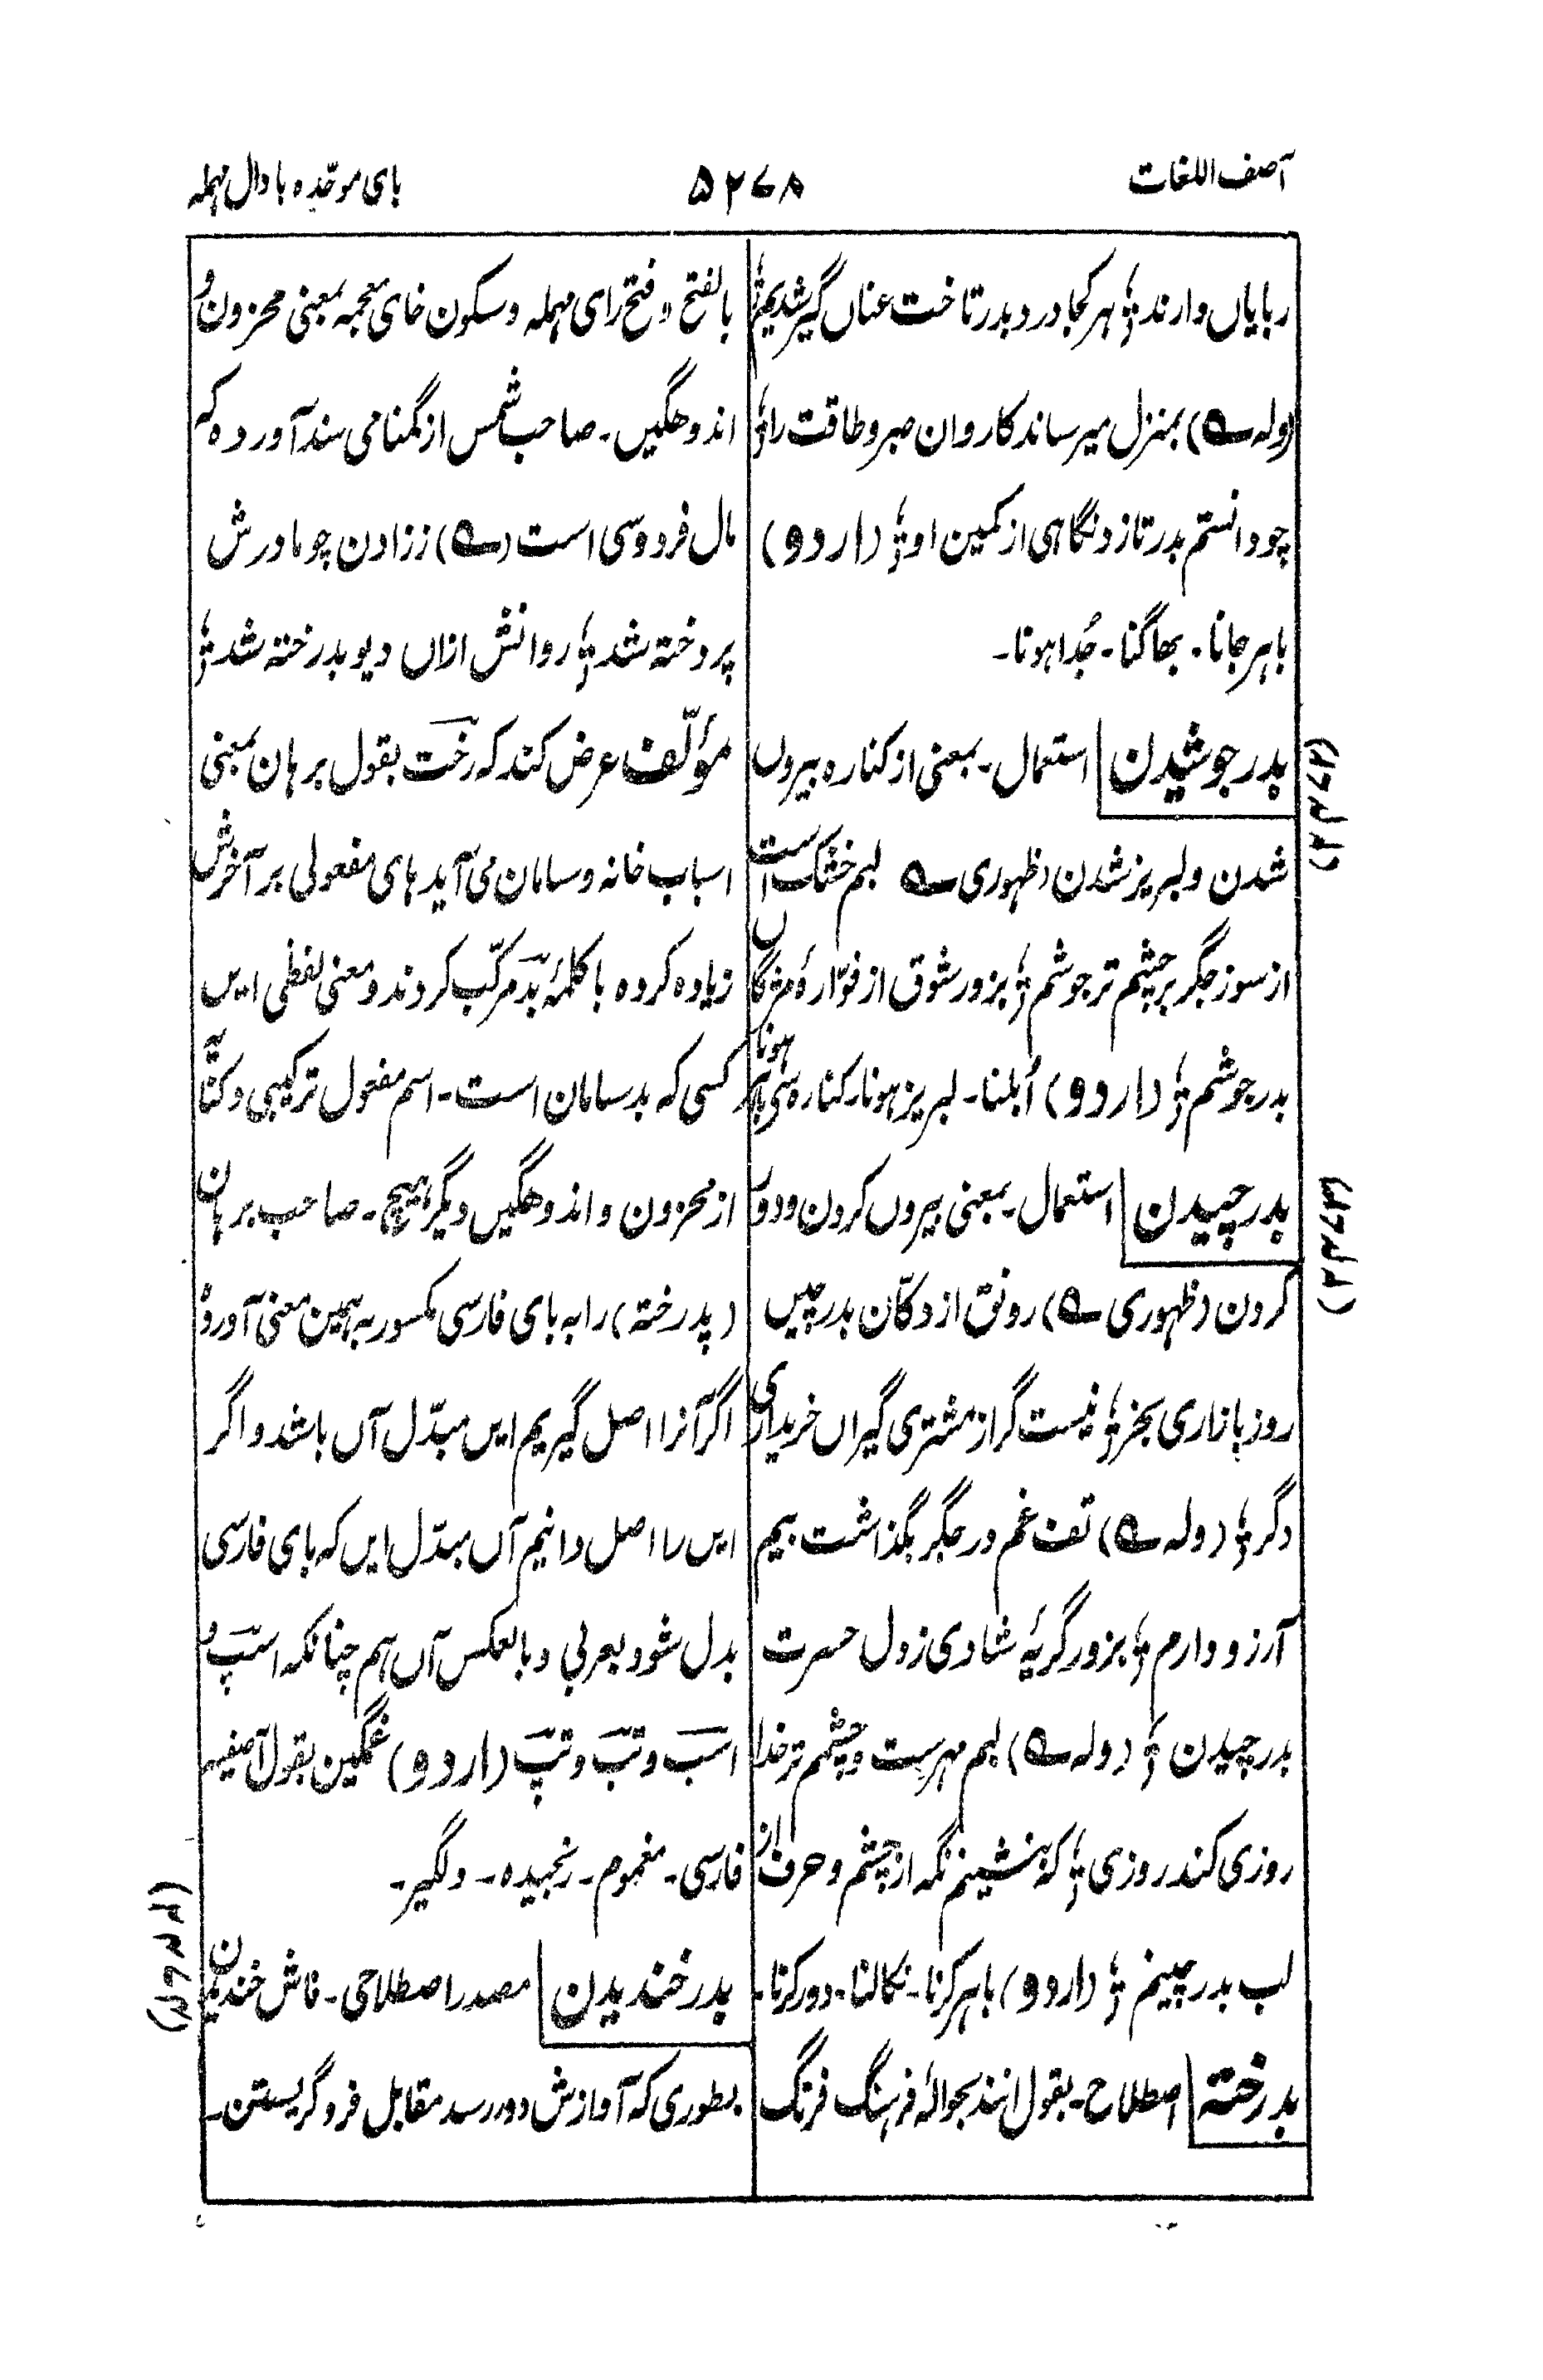 آصف اللغات
۵۲۷۸
بای موحّده با دال مہملہ
ربایاں وارند ؛ ہر کجا درد بدر تاخت عناں گیر شدیم ؛
(ولہ ؎) بمنزل میرساند کاروان صبر و طاقت را ؛
چو دانستم بدر تازد نگاہی از کمین او ؛ (اردو)
باہر جانا ۔ بھاگنا ۔ جُدا ہونا ۔
بدر جوشیدن استعمال ۔ بمعنی از کنارہ بیروں
شدن و لبریز شدن (ظہوری ؎ لبم خشک است
از سوز جگر بر چشم تر جوشم ؛ بزور شوق از فوّارۂ مژگاں
بدر جوشم ؛ (اردو) اُبلنا ۔ لبریز ہونا ۔ کنارہ سے باہر ہونا
بدر چیدن استعمال ۔ بمعنی بیروں کردن و دور
کردن (ظہوری ؎) رونق از دکّان بدر چیں
روز بازاری بخر ؛ نیست گر از مشتری گیراں خریداری
دگر ؛ (ولہ ؎) تف غم در جگر بگذاشت بیم
آرزو دارم ؛ بزور گریۂ شادی ز دل حسرت
بدر چیدن ؛ (ولہ ؎) لبم مہر ست و چشم تر خدا
روزی کند روزی ؛ کہ بنشینم نگہ از چشم و حرف از
لب بدر چینم ؛ (اردو) باہر کرنا ۔ نکالنا ۔ دور کرنا ۔
بدرختہ اصطلاح ۔ بقول انند بحوالۂ فرہنگ فرنگ
بالفتح و فتح رای مہملہ و سکون خای معجمہ بمعنی محزون و
اندوھگیں ۔ صاحب شمس از گمنامی سند آوردہ کہ
مال فردوسی است (؎) ززادن چو مادرش
پردختہ شد ؛ روانش ازاں دیو بدرختہ شد ؛
مؤلّف عرض کند کہ رخت بقول برہان بمعنی
اسباب خانہ و سامان می آید ہای مفعولی بر آخرش
زیادہ کردہ با کلمۂ بد مرکّب کردند و معنی لفظی ایں
کسی کہ بد سامان است ۔ اسم مفعول ترکیبی و کنایہ
از محزون و اندوھگیں دیگر ہیچ ۔ صاحب برہان
(پدرختہ) را بہ بای فارسی مکسور بہمین معنی آوردہ
اگر آنرا اصل گیریم ایں مبدّل آں باشد و اگر
ایں را اصل دانیم آں مبدّل ایں کہ بای فارسی
بدل شود بعربی و بالعکس آں ہم چنانکہ اسپ و
اسب و تب و تپ (اردو) غمگین بقول آصفیہ
فارسی ۔ مغموم ۔ رنجیدہ ۔ دلگیر ۔
بدر خندیدن مصدر اصطلاحی ۔ فاش خندیدن
بطوری کہ آوازش دور رسد مقابل فرو گریستن ۔